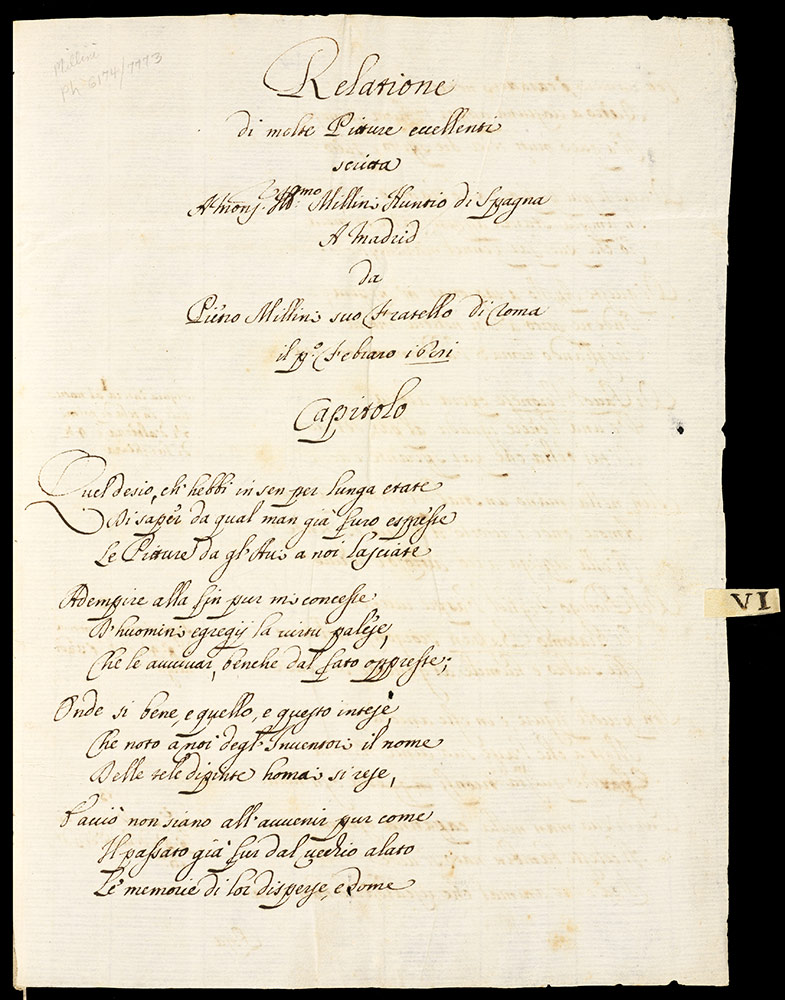 Millini
Ph 6174/7773
Relatione
di molte Pitture eccellenti
scritta
A Monsr. Illmo Millini Nuntio di Spagna
A Madrid
da
Pietro Millini suo Fratello di Roma
il po. Febraro
Capitolo
Quel desio, ch' hebbi in sen per lunga etate
Di saper da qual man già furo espresse
Le Pitture da gl' Aui a noi lasciate
Adempire alla fin pur mi concesse
D'huomini egregij la virtù palese,
Che le auuiuar, benche dal fato oppresse;
Onde si bene, e quello, e questo intese
Che noto à noi degl' Inuentori il nome
Delle tele dipinte homai si rese,
Acciò non siano all' auuenir pur come
Il passato già fur dal vecchio alato
Le memorie di lor disperse, e dome
VI